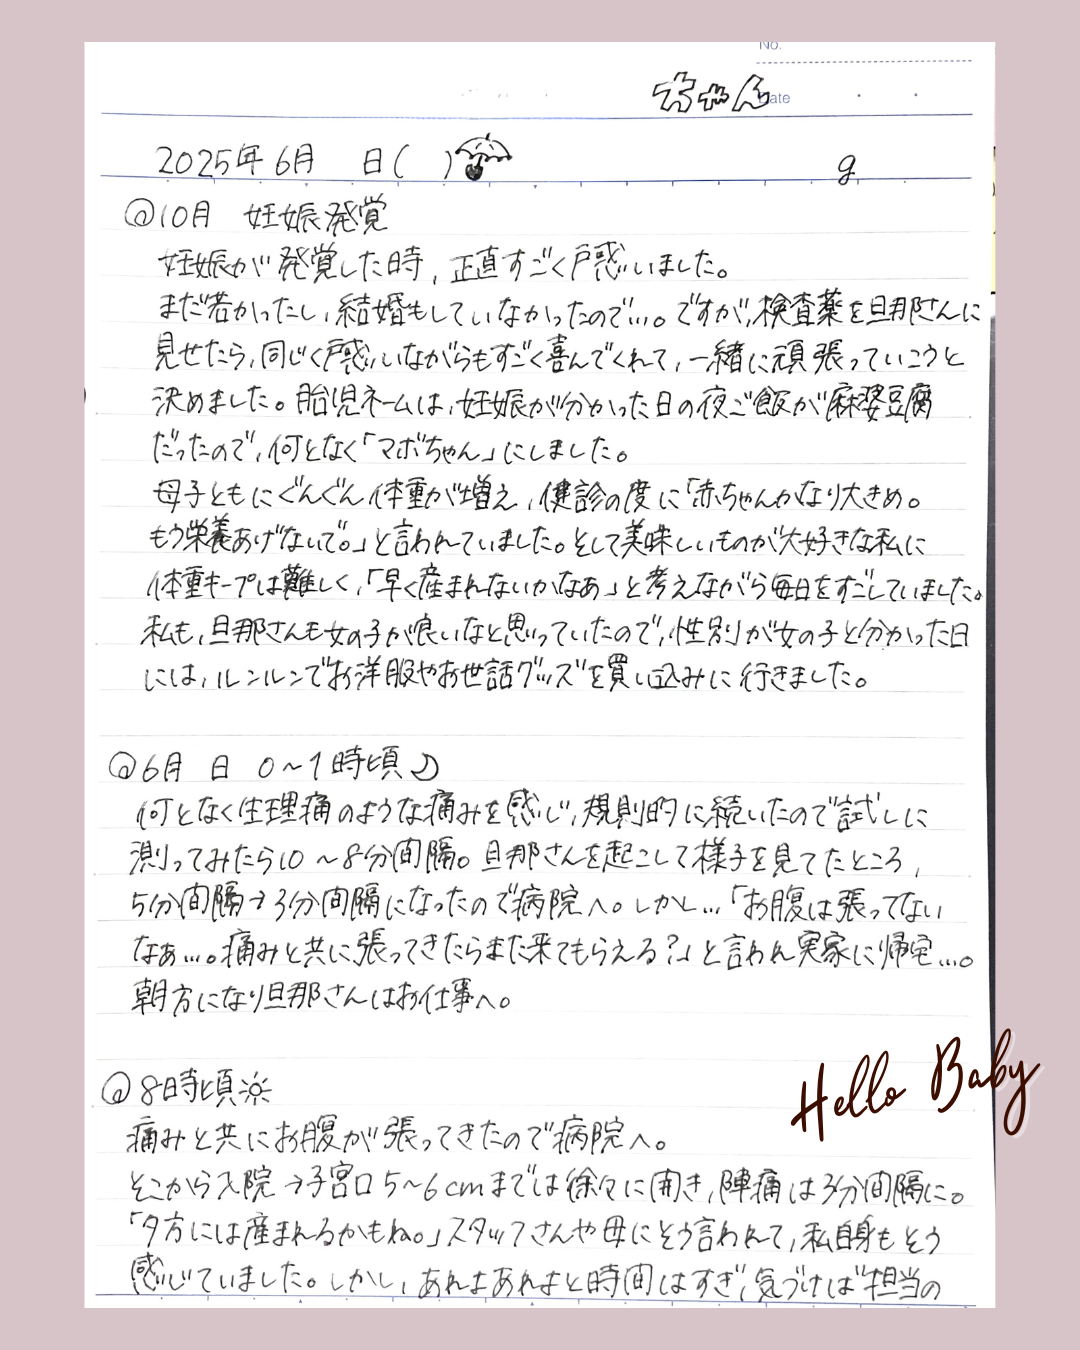 No.
ちゃん
Date
2025年6月 日( ) g
@10月 妊娠発覚
妊娠が発覚した時,正直すごく戸惑いました。
まだ若かったし,結婚もしていなかったので…。ですが,検査薬を旦那さんに
見せたら,同じく戸惑いながらもすごく喜んでくれて,一緒に頑張っていこうと
決めました。胎児ネームは,妊娠が分かった日の夜ご飯が麻婆豆腐
だったので,何となく「マボちゃん」にしました。
母子ともにぐんぐん体重が増え,健診の度に「赤ちゃんかなり大きめ。
もう栄養あげないで。」と言われていました。そして美味しいものが大好きな私に
体重キープは難しく,「早く産まれないかなあ」と考えながら毎日をすごしていました。
私も,旦那さんも女の子が良いなと思っていたので,性別が女の子と分かった日
には,ルンルンでお洋服やお世話グッズを買い込みに行きました。
@6月 日 0~1時頃☽
何となく生理痛のような痛みを感じ,規則的に続いたので試しに
測ってみたら10~8分間隔。旦那さんを起こして様子を見てたところ,
5分間隔→3分間隔になったので病院へ。しかし…「お腹は張ってない
なぁ…。痛みと共に張ってきたらまた来てもらえる?」と言われ実家に帰宅…。
朝方になり旦那さんはお仕事へ。
@8時頃☼
痛みと共にお腹が張ってきたので病院へ。
そこから入院→子宮口5~6cmまでは徐々に開き,陣痛は3分間隔に。
「夕方には産まれるかもね。」スタッフさんや母にそう言われて,私自身もそう
感じていました。しかし,あれよあれよと時間はすぎ,気づけば担当の
Hello Baby